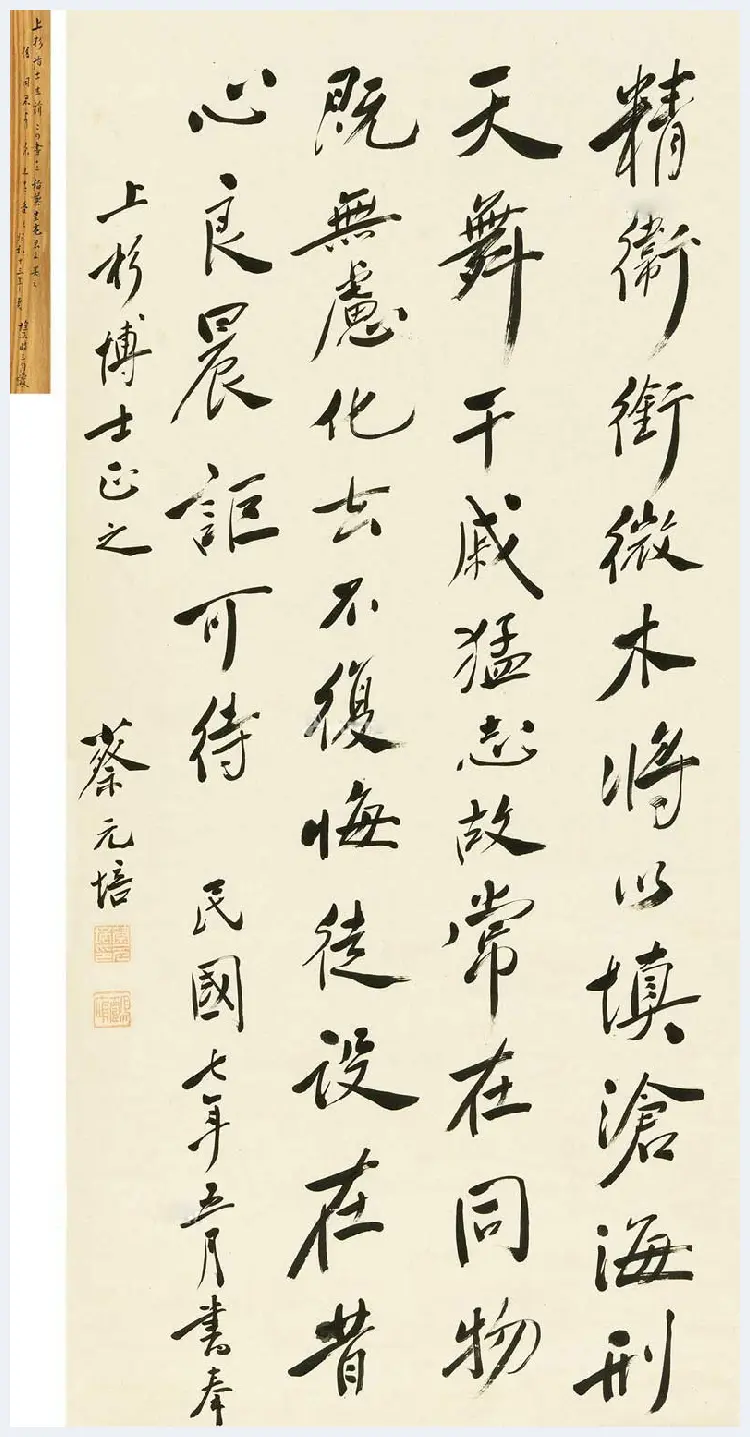 精衛銜微木將以填滄海刑
天舞干戚猛志故常在同物
既無慮化去不復悔徒設在昔
心良晨詎可待 民國七年五月書奉
上杉博士正之 蔡元培